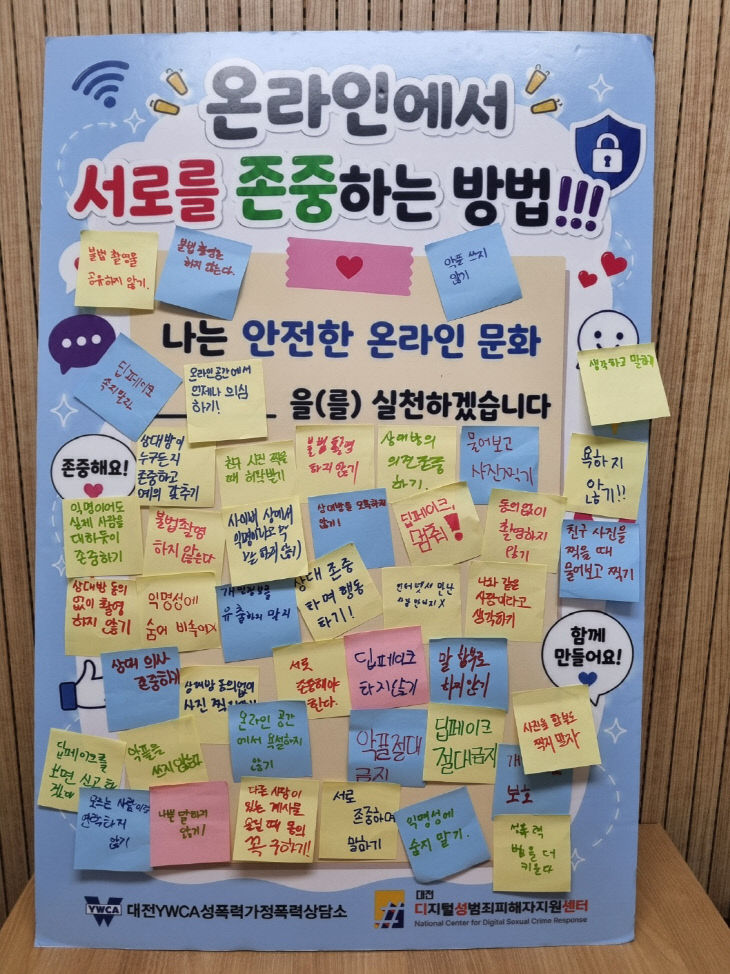 온라인에서
서로를 존중하는 방법!!!
불법 촬영물
공유하지 않기.
불법 촬영은
하지 않는다.
악플 쓰지
않기
나는 안전한 온라인 문화
을(를) 실천하겠습니다
딥페이크
속지말자
온라인 공간에서
언제나 의심
하기!
생각하고 말하기
존중해요!
상대방이
누구든지
존중하고
예의 갖추기
친구 사진 찍을
때 허락받기
불법 촬영
하지 않기
상대방의
의견존중
하기.
물어보고
사진찍기
욕하지
않기!!
익명이어도
실제 사람을
대하듯이
존중하기
불법촬영
하지 않는다
사이버 상에서
익명이라고 막
않기
상대방을 모욕하지
않기!
딥페이크,
멈춰!
동의없이
촬영하지
않기
친구 사진을
찍을 때
물어보고 찍기
상대방 동의
없이 촬영
하지 않기
익명성에
숨어 비속어X
개인정보를
유출하지 말기
상대 존중
하며 행동
하기!
인터넷서 만난
사람 만나지 X
나와 같은
사람이라고
생각하기
함께
만들어요!
상대 의사
존중하기
상대방 동의없이
사진 찍지
서로
존중해야
한다.
딥페이크
하지않기
말 함부로
하지 않기
딥페이크를
보면 신고 하
겠다
악플을
쓰지 않는다
온라인 공간
에서 욕설하지
않기
악플절대
금지
딥페이크
절대금지
사진을 함부로
찍지 말자
개
보호
모르는 사람이랑
연락하지
않기
나쁜 말하지
않기!
다른 사람이
있는 게시물
올릴 때 동의
꼭 구하기!
서로
존중하며
말하기
익명성에
숨지 말기.
성폭력
법을 더
키운다
YWCA 대전YWCA성폭력가정폭력상담소
대전
디지털성범죄피해자지원센터
National Center for Digital Sexual Crime Response